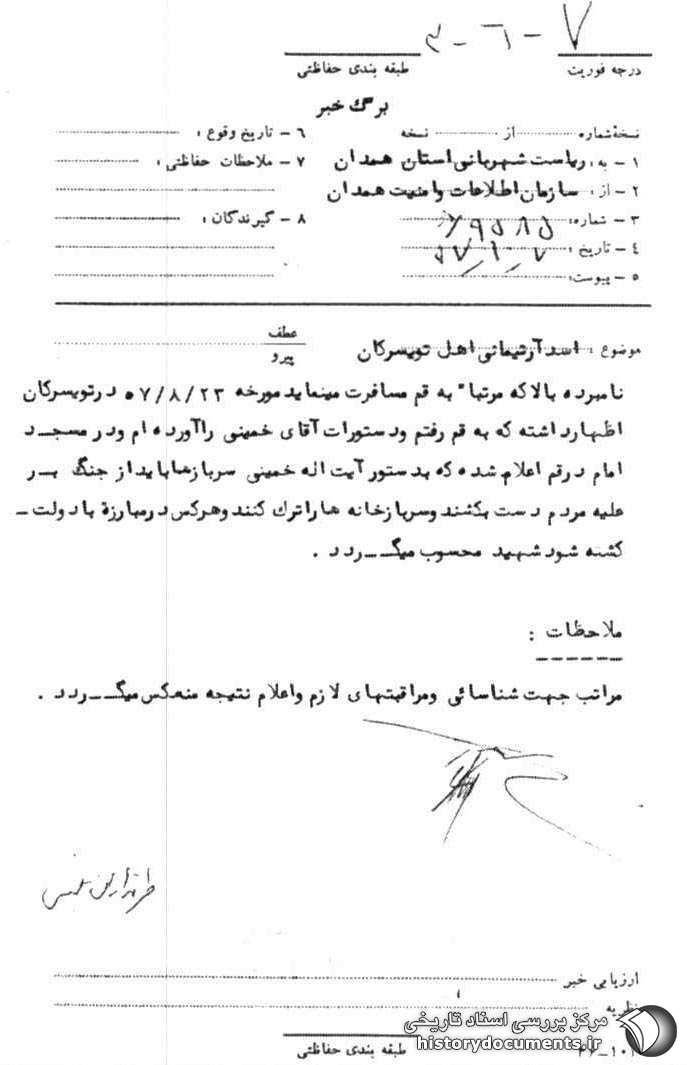 ۷-۶-۳
درجه فوریت
طبقه بندی حفاظتی
برگ خبر
نسخهٔ شماره از نسخه
۱ - به: ریاست شهربانی استان همدان
۲ - از: سازمان اطلاعات وامنیت همدان
۳ - شماره:
۴ - تاریخ:
۵ - پیوست:
۶ - تاریخ وقوع:
۷ - ملاحظات حفاظتی:
۸ - گیرندگان:
موضوع: اسد آرتیمانی اهل تویسرکان
عطف
پیرو
نامبرده بالا که مرتبا" به قم مسافرت مینماید مورخه ۵۷/۸/۲۳ در تویسرکان
اظهار داشته که به قم رفتم و دستورات آقای خمینی را آورده ام ودر مسجد
امام در قم اعلام شده که بدستور آیت اله خمینی سربازها باید از جنگ بر
علیه مردم دست بکشند و سربازخانه ها را ترك کنند و هرکس در مبارزة با دولت -
کشته شود شهید محسوب میگردد .
ملاحظات :
مراتب جهت شناسائی ومراقبتهای لازم واعلام نتیجه منعکس میگردد .
ارزیابی خبر
نظریه
طبقه بندی حفاظتی
مرکز بررسی اسناد تاریخی
historydocuments.ir